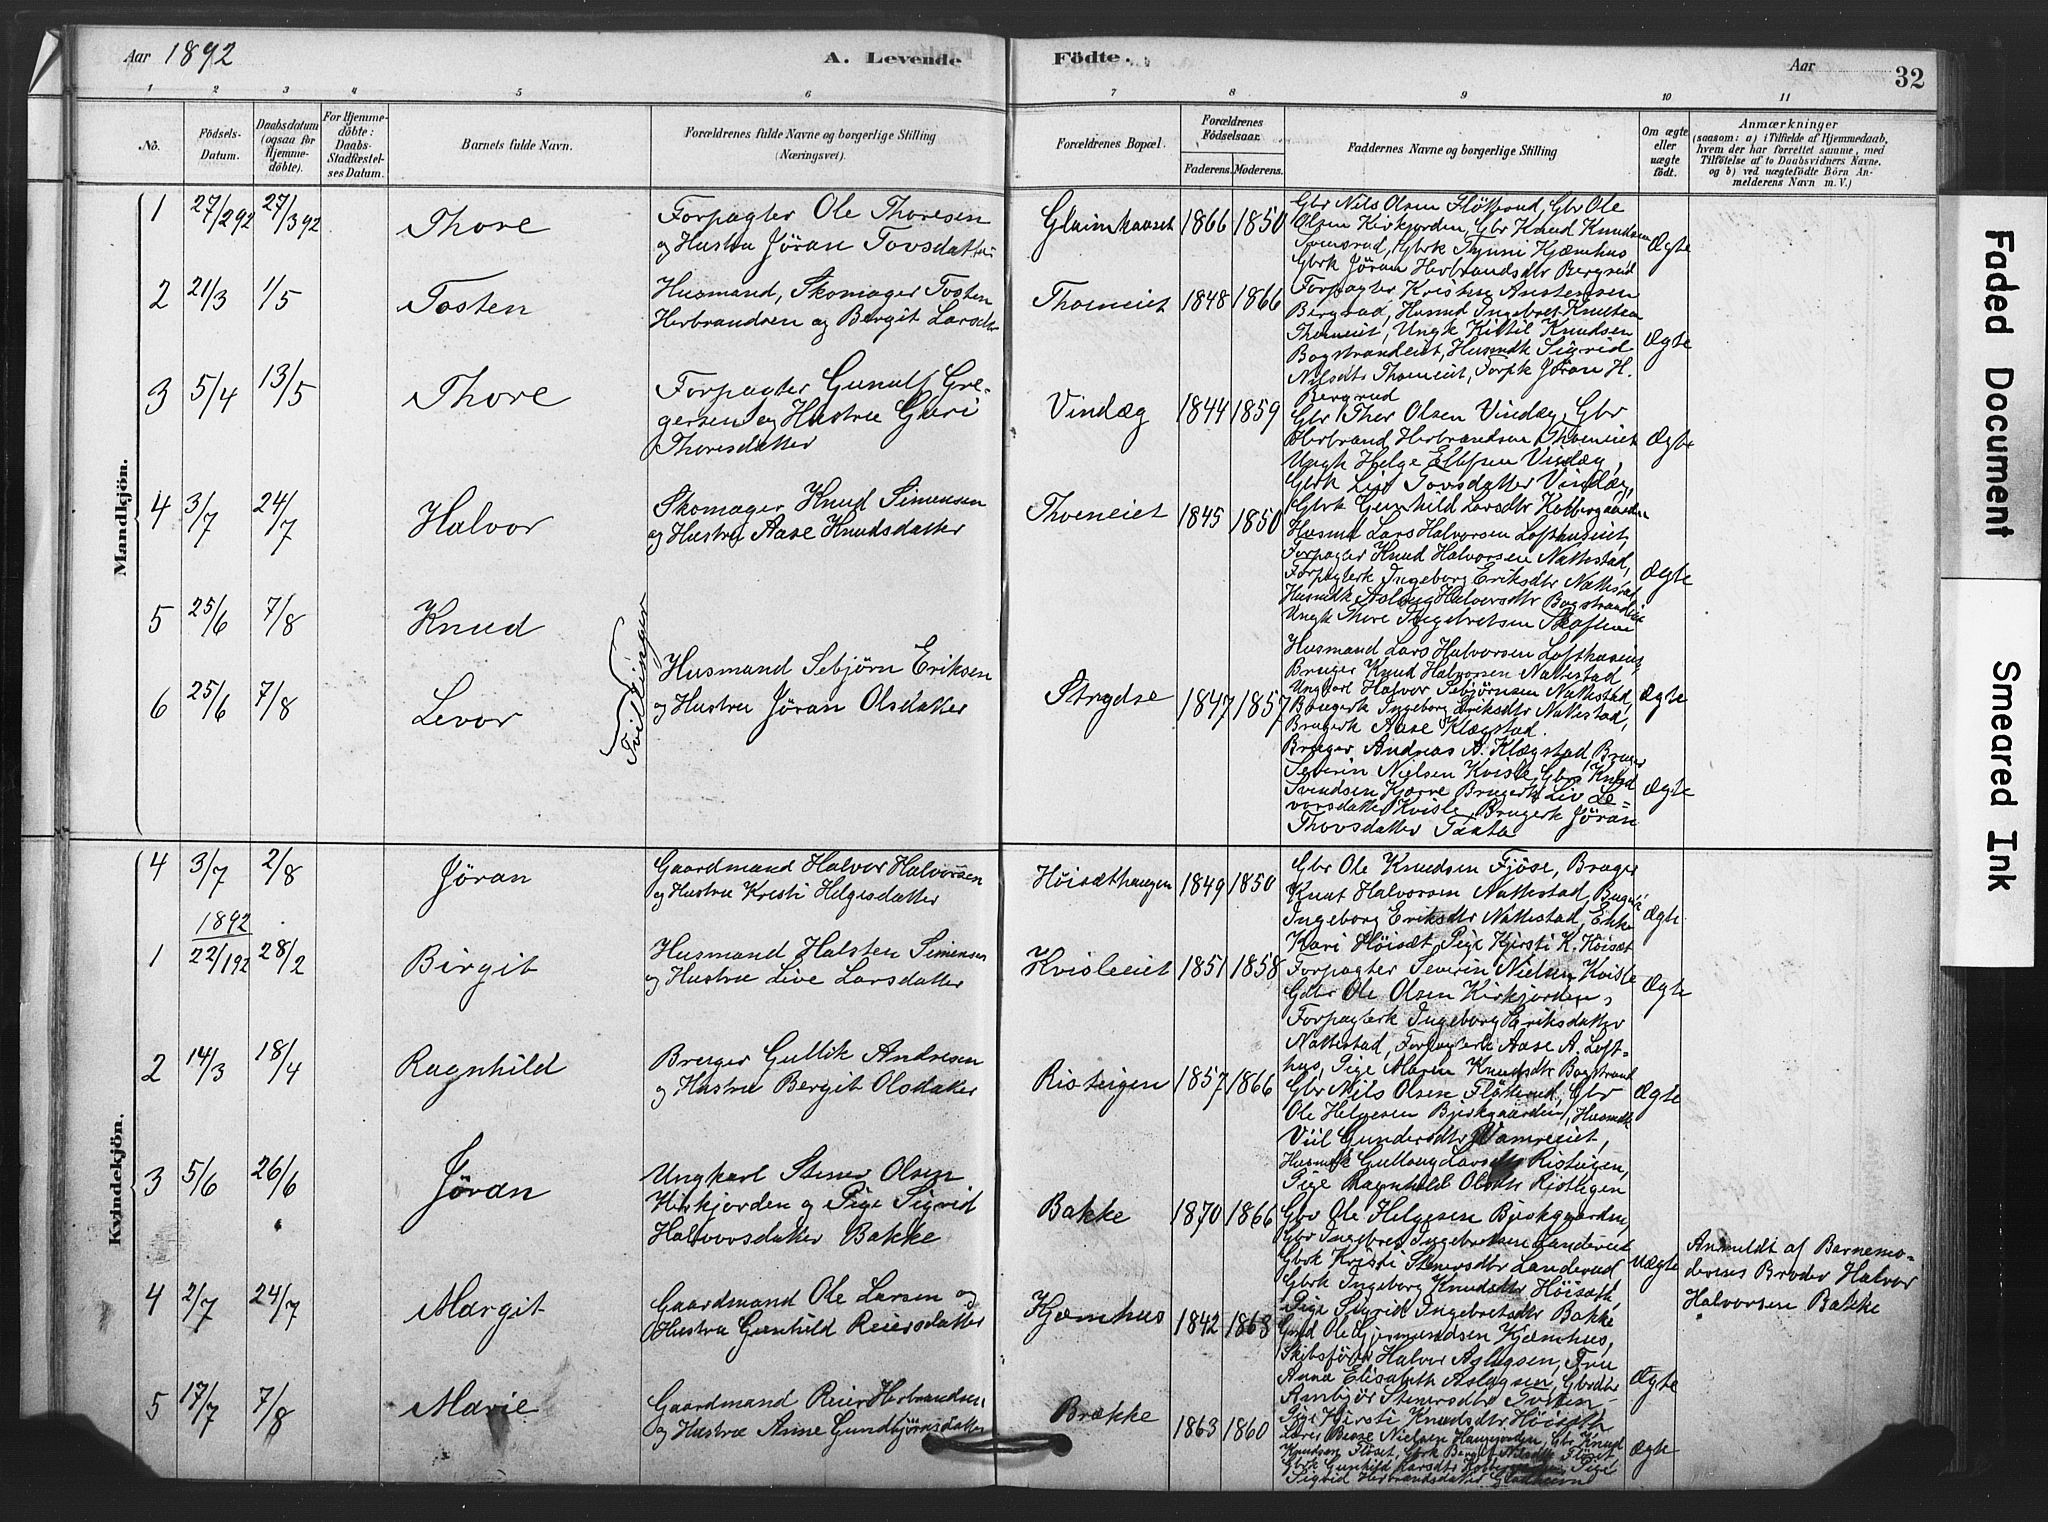 Aar 1892
A. Levende Födte.
Aar
32
1 2 3 4 5 6 7 8 9 10 11
No.
Födsels-Datum.
Daabsdatum (ogsaa for Hjemme-döbte).
For Hjemme-döbte: Daabs-Stadfæstel-ses Datum.
Barnets fulde Navn.
Forældrenes fulde Navne og borgerlige Stilling (Næringsvei).
Forældrenes Bopæl.
Forældrenes Födselsaar.
Faderens. Moderens.
Faddernes Navne og borgerlige Stilling
Om ægte eller uægte födt.
Anmærkninger
(saasom: a) i Tilfælde af Hjemmedaab, hvem der har forrettet samme, med Tilföielse af to Daabsvidners Navne, og b) ved uægtefödte Börn An-melderens Navn m. V.)
Mandkjön.
1 27/2 92 27/3 92 Thore
Forpagter Ole Thoresen
og Hustru Jöran Tovsdatter
1866 1850
Gbr Nils Olsen Flötterud, Gbr Ole
Olsen Kirkjorden, Gbr Knud Knudsen
Gbrk Jöran Herbrandsdtr Bergrud
Ægte
2 21/3 1/5 Tosten
Husmand, Skomager Tosten
Herbrandsen og Bergit Larsdtr
Thoeneiet 1848 1866
Forpagter Kristen
Bergrud, Husmd Ingebret Knutsen
Thoeneiet, Ungk Kittil Knudsen
Bogstrandeiet, Husmdk Sigrid
Nilsdtr Thoeneiet, Forpk Jöran H.
Bergrud
Ægte
3 5/4 13/5 Thore
Forpagter Gunulf Gre-
gersen og Hustru Guri
Thoresdatter
Vindæg 1844 1859
Gbr Thor Olsen Vindæg, Gbr
Herbrand Herbrandsen Thoeneiet
Ungk Helge Ellefsen Vindæg,
Gbrk Liv Tovsdatter Vindæg,
Gbrk Gunhild Larsdtr
Ægte
4 3/7 24/7 Halvor
Skomager Knud Simensen
og Hustru Aase Knudsdatter
Thoeneiet 1845 1850
Husmd Lars Halvorsen Lofthuseiet,
Forpagter Knud Halvorsen Nattestad,
Forpagterk Ingeborg Eriksdtr Nattestad
Husmdk Aslaug Halvorsdtr Bogstrandeie
Ungk Thore Ingebretsen
Ægte
5 25/6 7/8 Knud
Tvillinger
6 25/6 7/8 Levor
Husmand Sebjørn Eriksen
og Hustru Jöran Olsdatter
Strydse 1847 1857
Husmand Lars Halvorsen Lofthuseiet
Bruger Knud Halvorsen Nattestad
Ungkarl Halvor Sebjørnsen Nattestad,
Brugerk Ingeborg Eriksdtr Nattestad,
Brugerk Aase Klægstad.
Ægte
Bruger Andreas A. Klægstad, Bruger
Severin Nielsen Kvisle, Gbr Knud
Svendsen Kjorre Brugerk Liv Le-
vorsdatter Kvisle, Brugerk Jöran
Thovsdatter
Ægte
4 3/7 2/8 Jöran
Gaardmand Halvor Halvorsen
og Hustru Kristi Helgesdatter
Höisæthaugen 1849 1850
Gbr Ole Knudsen Fjöse, Bruger
Knut Halvorsen Nattestad, Brugerk
Ingeborg Eriksdtr Nattestad, Enke
Kari Höisæt, Pige Kjersti K. Höisæt
Ægte
Kvindekjön.
1892
1 22/1 92 28/2 Birgit
Husmand Halsten Simensen
og Hustru Live Larsdatter
Kvisleeiet 1851 1858
Forpagter Severin Nielsen Kvisle
Gdbr Ole Olsen Kirkjorden,
Forpagterk Ingeborg Eriksdatter
Nattestad, Forpagterk Aase A. Loft-
hus, Pige Maren Knudsdtr Bogstrand
Ægte
2 14/3 18/4 Ragnhild
Bruger Gullik Andresen
og Hustru Bergit Olsdatter
Risteigen 1857 1866
Gbr Nils Olsen Flötterud, Gbr
Ole Helgesen Bjerkgaarden, Husmdk
Viil Gundersdtr
Husmdk Gullaug Larsdtr Risteigen,
Pige Ragnhild Olsdtr Risteigen
Ægte
3 5/6 26/6 Jöran
Ungkarl Stener Olsen
Kirkjorden og Pige Sigrid
Halvorsdatter Bakke
Bakke 1870 1866
Gbr Ole Helgesen Bjerkgaarden,
Gbr Ingebret Ingebretsen Landerud
Gbrk Kristi Stenersdtr Landerud
Gbrk Ingeborg Knudsdtr Höisæt,
Pige Sigrid Ingebretsdtr Bakke
Uægte
Anmeldt af Barnemo-
derens Broder Halvor
Halvorsen Bakke
4 2/7 24/7 Margit
Gaardmand Ole Larsen og
Hustru Gunhild Reiersdatter
Kjæmhus 1842 1863
Gmd Ole Gjermundsen Kjæmhus,
Skibsfører Halvor Aslagsen, Fru
Anna Elisabeth Aslagsen,
Anbjör Stenersdtr
Pige Kjersti Knudsdtr Höisæth
Ægte
5 17/7 7/8 Marie
Gaardmand Reier Herbrandsen
og Hustru Anne Gundbjörnsdatter
Brække 1863 1860
Gbr Knud
Knudsen
Gbrk Gunhild Larsdtr
Sigrid Herbrandsdatter
Ægte
Faded Document
Smeared Ink